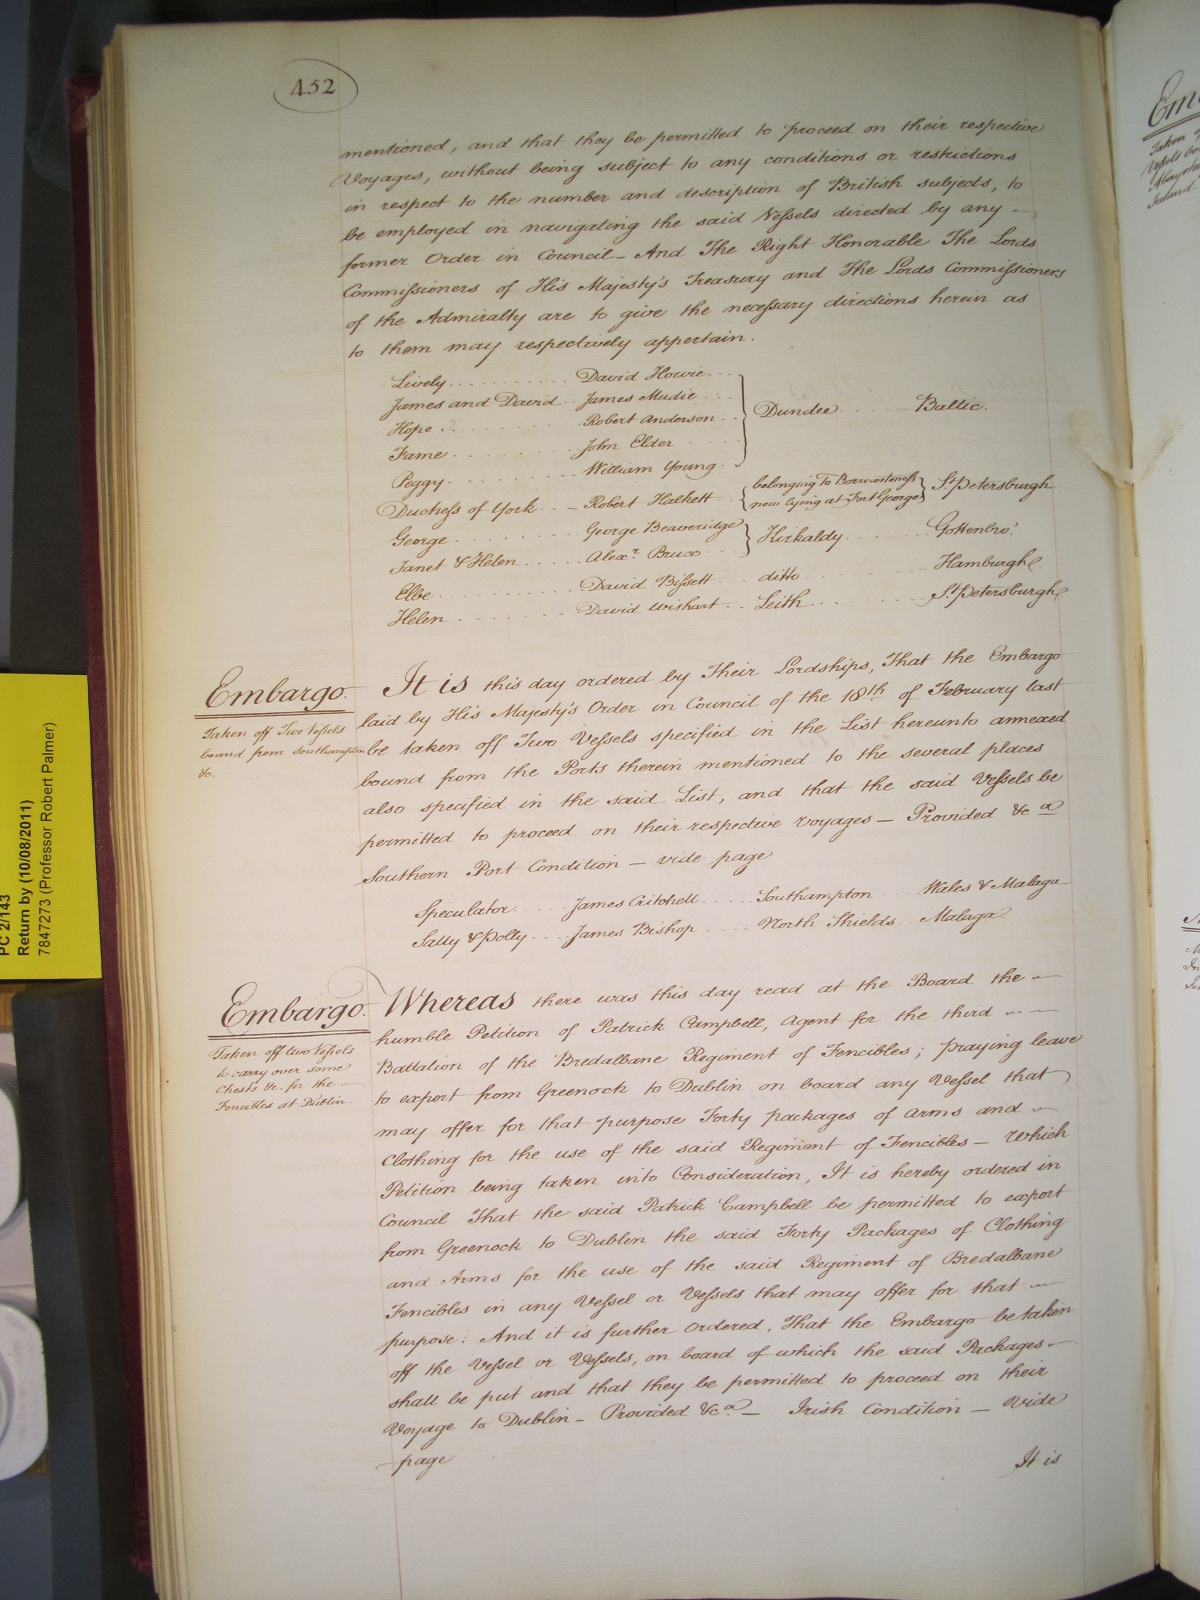 452
mentioned, and that they be permitted to proceed on their respective
Voyages, without being subject to any conditions or restrictions
in respect to the number and description of British subjects, to
be employed in navigating the said Vessels directed by any —
former Order in Council — And The Right Honorable The Lords
Commissioners of His Majesty's Treasury and The Lords Commissioners
of the Admiralty are to give the necessary directions herein as
to them may respectively appertain.
Lively . . . . David Howie . . .
James and David . . James Mudie . . .
Hope . . . . Robert Anderson . . } Dundee . . . . Baltic.
Fame . . . . John Elder . . .
Peggy . . . . William Young . .
Duchess of York . . — Robert Halkett . . { belonging to Borrowstoness now lying at Fort George } St. Petersburgh
George . . . . George Beaveridge
Janet & Helen . . . . Alexr. Bruce . . } Kirkaldy . . . . Gottenbro'
Elbe . . . . David Bissett . . . ditto . . . . Hamburgh
Helen . . . . David Wishart . . Leith . . . . St. Petersburgh
Embargo.
Taken off Two Vessels
bound from Southampton
&c.
It is this day ordered by Their Lordships, That the Embargo
laid by His Majesty's Order in Council of the 18th of February last
be taken off Two Vessels specified in the List hereunto annexed
bound from the Ports therein mentioned to the several places
also specified in the said List, and that the said Vessels be
permitted to proceed on their respective voyages — Provided &ca
Southern Port Condition — vide page
Speculator . . . . James Critchell . . . . Southampton . . . Wales & Malaga
Sally & Polly . . . James Bishop . . . . North Shields . . Malaga
Embargo.
Taken off two Vessels
to carry over some
Chests &c. for the —
Fencibles at Dublin
Whereas there was this day read at the Board the —
humble Petition of Patrick Campbell, Agent for the third — —
Battalion of the Bredalbane Regiment of Fencibles; praying leave
to export from Greenock to Dublin on board any Vessel that
may offer for that purpose Forty packages of Arms and —
Clothing for the use of the said Regiment of Fencibles — Which
Petition being taken into Consideration, It is hereby ordered in
Council That the said Patrick Campbell be permitted to export
from Greenock to Dublin the said Forty Packages of Clothing
and Arms for the use of the said Regiment of Bredalbane
Fencibles in any Vessel or Vessels that may offer for that —
purpose: And it is further Ordered, That the Embargo be taken
off the Vessel or Vessels, on board of which the said Packages —
shall be put and that they be permitted to proceed on their
Voyage to Dublin — Provided &ca. — Irish Condition — Vide
page
It is
PC 2/143
Return by (10/08/2011)
7847273 (Professor Robert Palmer)